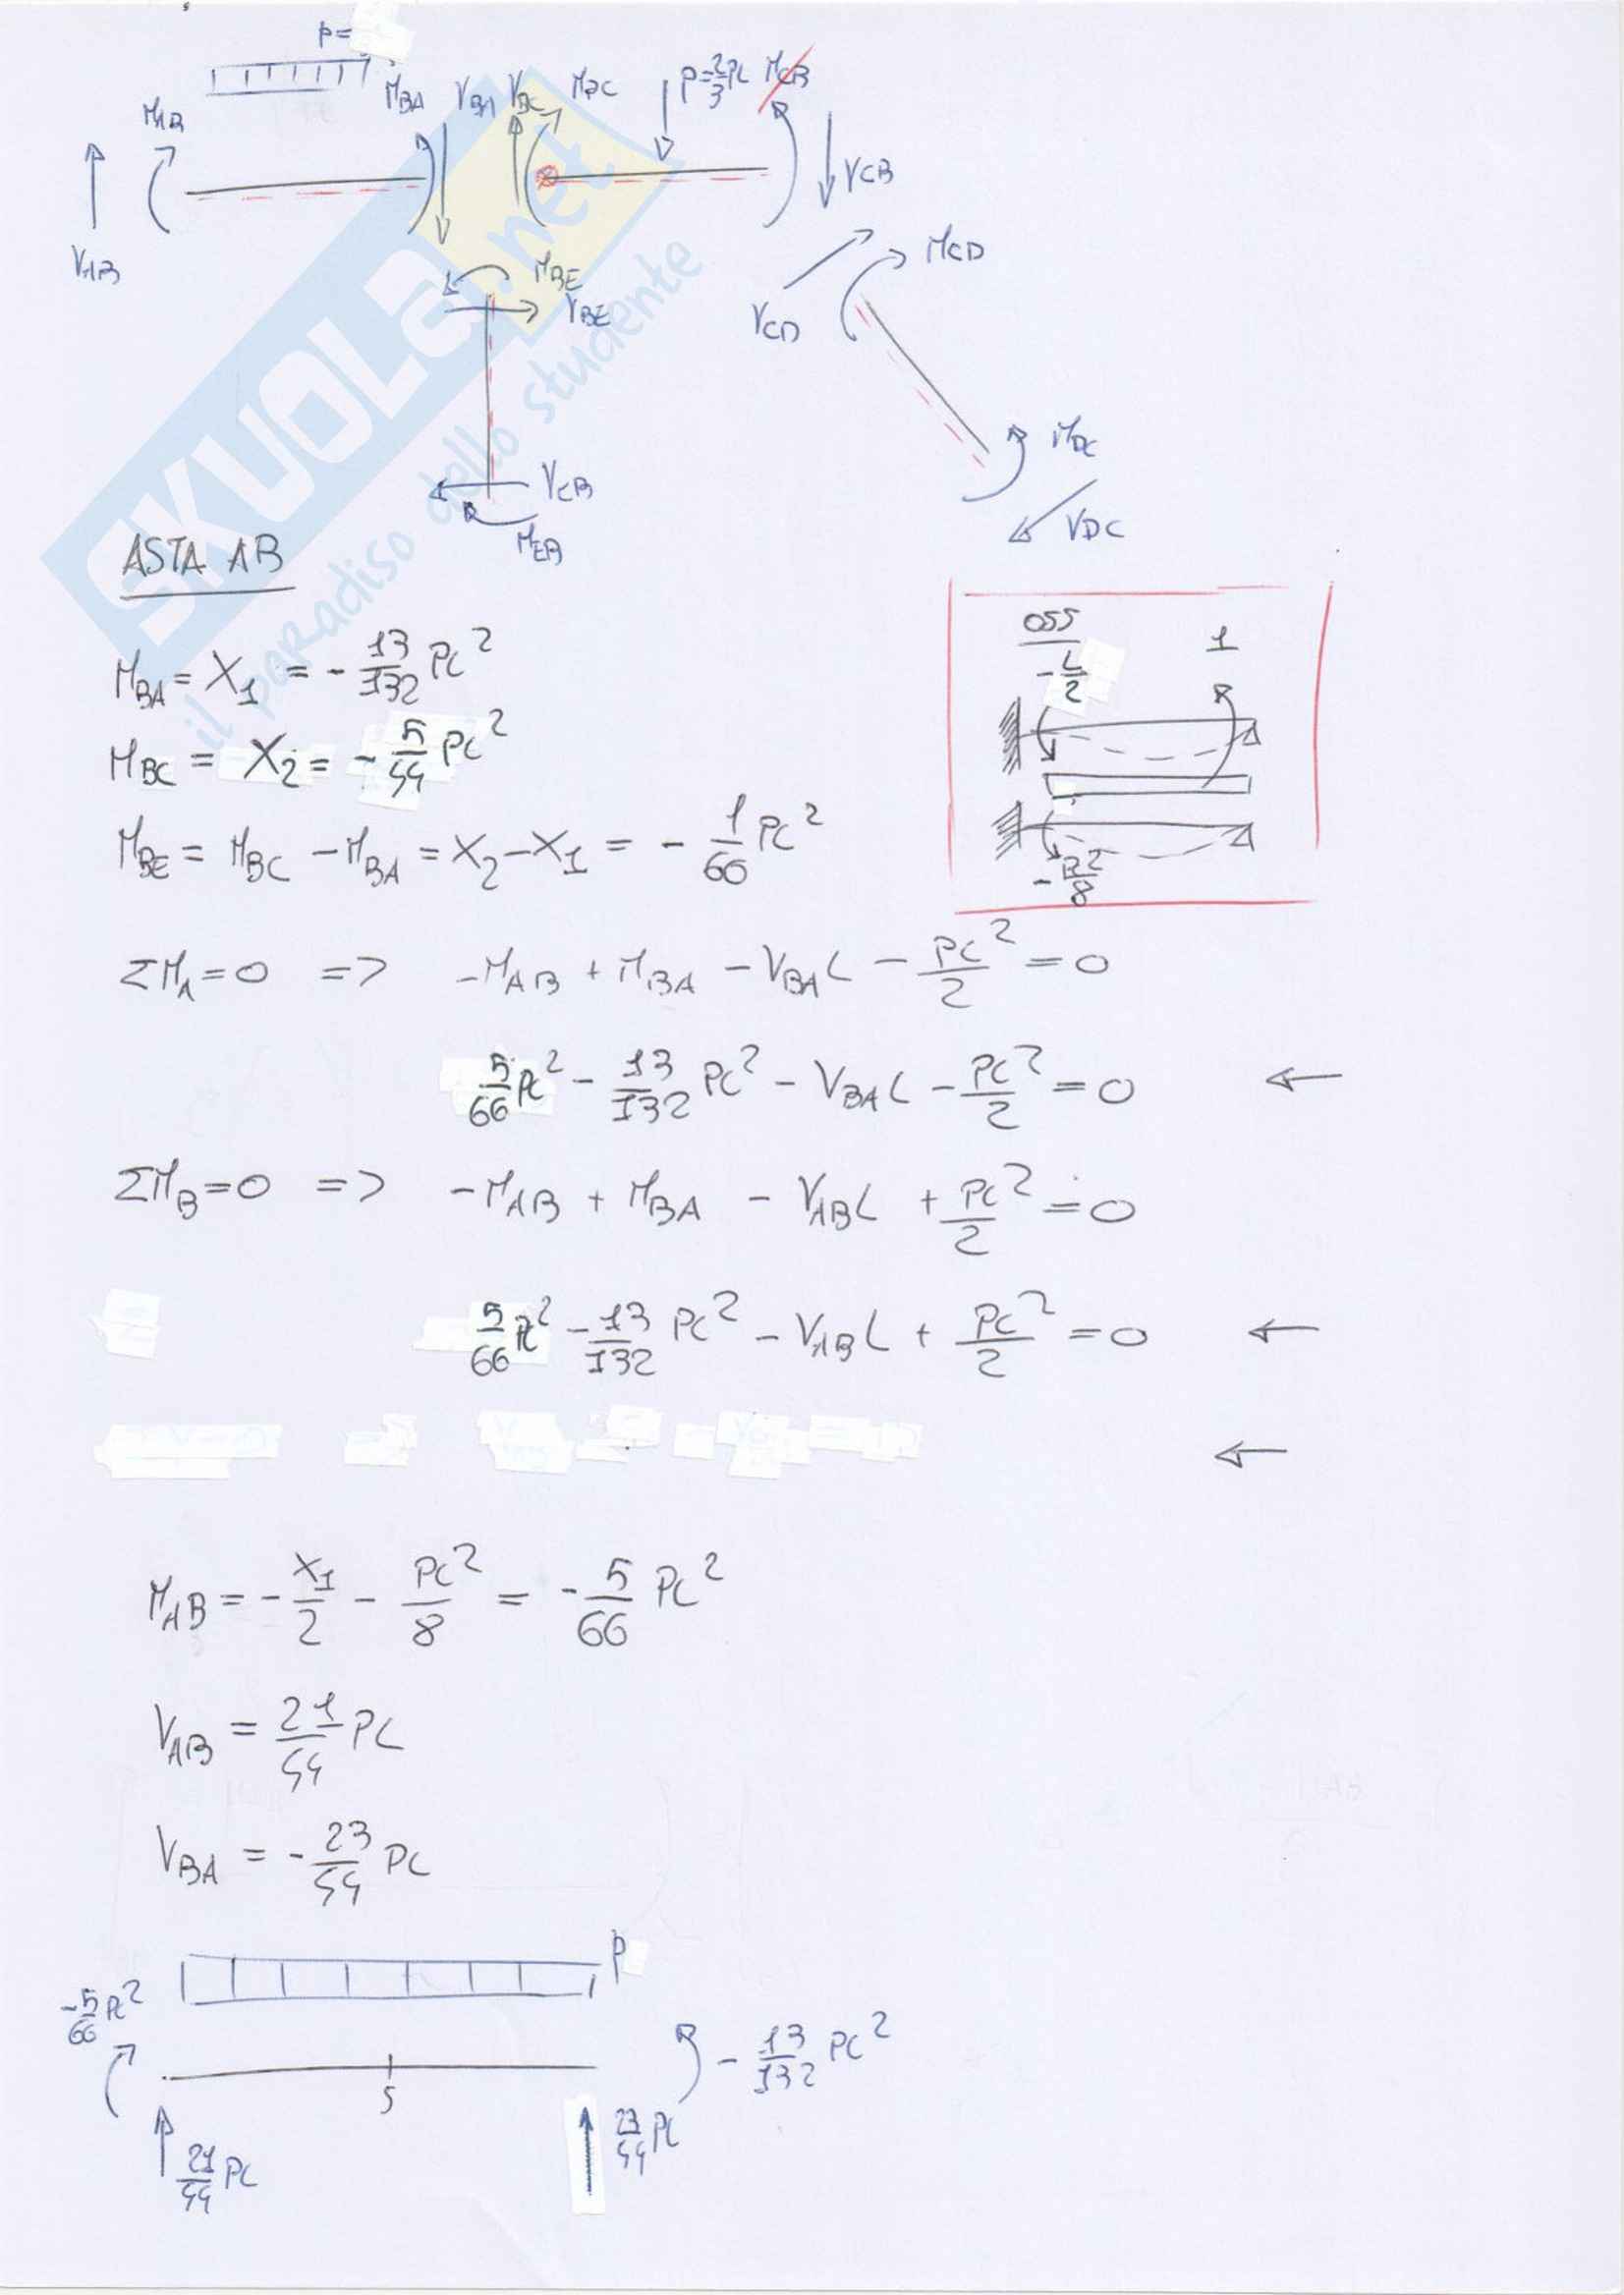 p=
M_AB M_BA V_BA V_BC M_BC P=2/3 PL M_CB
V_AB V_CB
M_BE V_BE
V_CD M_CD
V_CB M_EB
M_DC V_DC
SKUOLA.net
il paradiso dello studente
ASTA AB
OSS
-L/2 1
-PL²/8
M_BA = X_1 = - 13/132 PL²
M_BC = X_2 = - 5/44 PL²
M_BE = M_BC - M_BA = X_2 - X_1 = - 1/66 PL²
ΣM_A=0 => -M_AB + M_BA - V_BA L - PL²/2 = 0
5/66 PL² - 13/132 PL² - V_BA L - PL²/2 = 0 ←
ΣM_B=0 => -M_AB + M_BA - V_AB L + PL²/2 = 0
5/66 PL² - 13/132 PL² - V_AB L + PL²/2 = 0 ←
←
M_AB = - X_1/2 - PL²/8 = - 5/66 PL²
V_AB = 21/44 PL
V_BA = - 23/44 PL
p
-5/66 PL² - 13/132 PL²
S
21/44 PL 23/44 PL